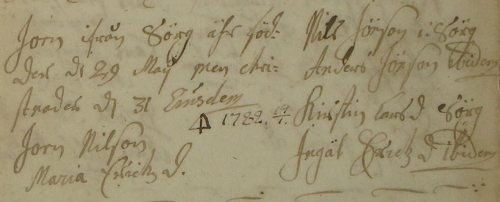 Jorn ifrån Sörg är föd=
der d 29 Maij men chri=
stnades d 31 Ejusdem
Jorn Nilson
Maria Erichs d.
1782. 
Nils Jörson i Sörg
Anders Jörson ibidem
Kirstin Lars d Sörg
Ingäl Erichs d ibidem